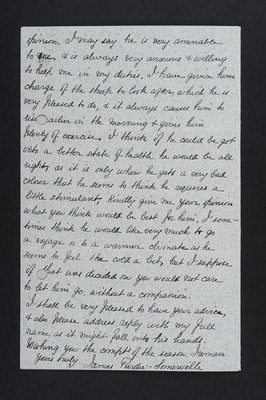 opinion. I may say he is very amenable
to me, & is always very anxious & willing
to help me in my duties, I have given him
charge of the sheep to look after, which he is
very pleased to do, & it always causes him to
rise earlier in the morning & gives him
plenty of exercise, I think if he could be got
into a better state of health he would be all
right, as it is only when he gets a very bad
colour that he seems to think he requires a
little stimulant, Kindly give me your opinion
what you think would be best for him, I some-
times think he would like very much to go
a voyage or to a warmer climate as he
seems to feel the cold a lot, but I suppose
if that was decided on you would not care
to let him go, without a companion.
I shall be very pleased to have your advice,
& also please address reply with my full
name as it might fall into his hands.
Wishing you the compts of the season, I remain
Yours truly James Somerville